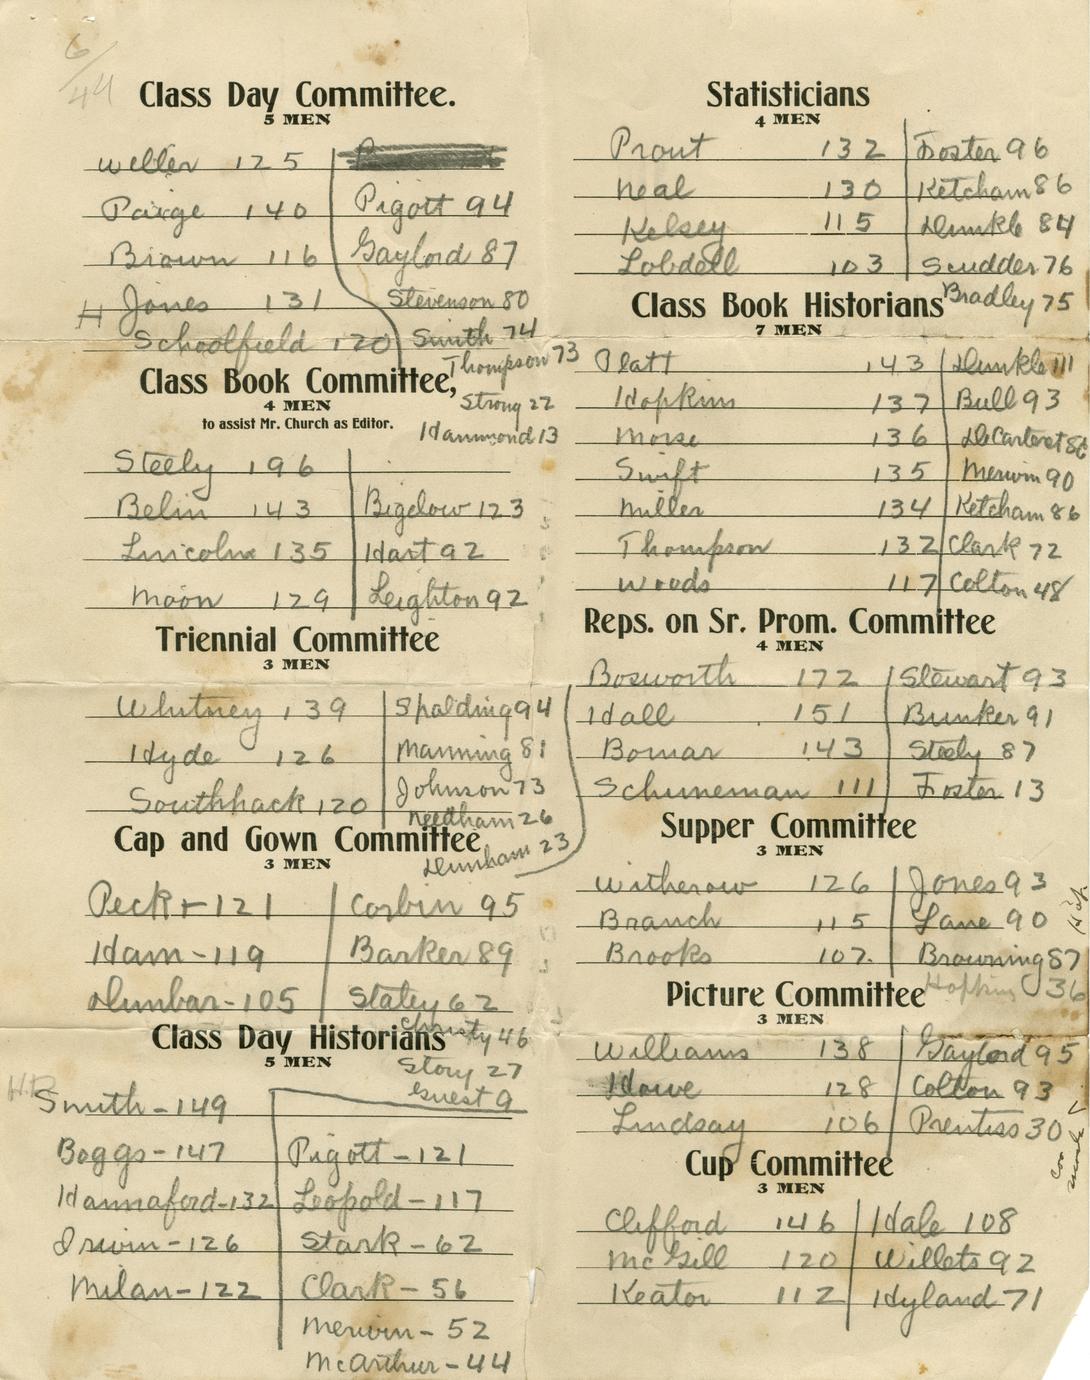 6/44
Class Day Committee.
5 MEN
Weller 125
Paige 140 Pigott 94
Brown 116 Gaylord 87
H Jones 131 Stevenson 80
Schoolfield 120 Smith 74
Thompson 73
Strong 22
Hammond 13
Class Book Committee,
4 MEN
to assist Mr. Church as Editor.
Steely 196
Belin 143 Bigelow 123
Lincoln 135 Hart 92
Moon 129 Leighton 92
Triennial Committee
3 MEN
Whitney 139 Spalding 94
Hyde 126 Manning 81
Southhack 120 Johnson 73
Needham 26
Dunham 23
Cap and Gown Committee
3 MEN
Peck + 121 Corbin 95
Ham - 119 Barker 89
Dunbar - 105 Staley 62
Christy 46
Story 27
Guest 9
Class Day Historians
5 MEN
H.B. Smith - 149
Boggs - 147 Pigott - 121
Hannaford - 132 Leopold - 117
Irwin - 126 Stark - 62
Milan - 122 Clark - 56
Merwin - 52
McArthur - 44
Statisticians
4 MEN
Prout 132 Foster 96
Neal 130 Ketcham 86
Kelsey 115 Dunkle 84
Lobdell 103 Scudder 76
Bradley 75
Class Book Historians
7 MEN
Platt 143 Dunkle 111
Hopkins 137 Bull 93
Morse 136 DeCarteret 86
Swift 135 Merwin 90
Miller 134 Ketcham 86
Thompson 132 Clark 72
Woods 117 Colton 48
Reps. on Sr. Prom. Committee
4 MEN
Bosworth 172 Stewart 93
Hall 151 Bunker 91
Bomar 143 Steely 87
Schuneman 111 Foster 13
Supper Committee
3 MEN
Witherow 126 Jones 93
Branch 115 Lane 90
Brooks 107. Browning 87
Hopkins 36
Picture Committee
3 MEN
Williams 138 Gaylord 95
Howe 128 Colton 93
Lindsay 106 Prentiss 30
Cup Committee
3 MEN
Clifford 146 Hale 108
McGill 120 Willets 92
Keator 112 Hyland 71